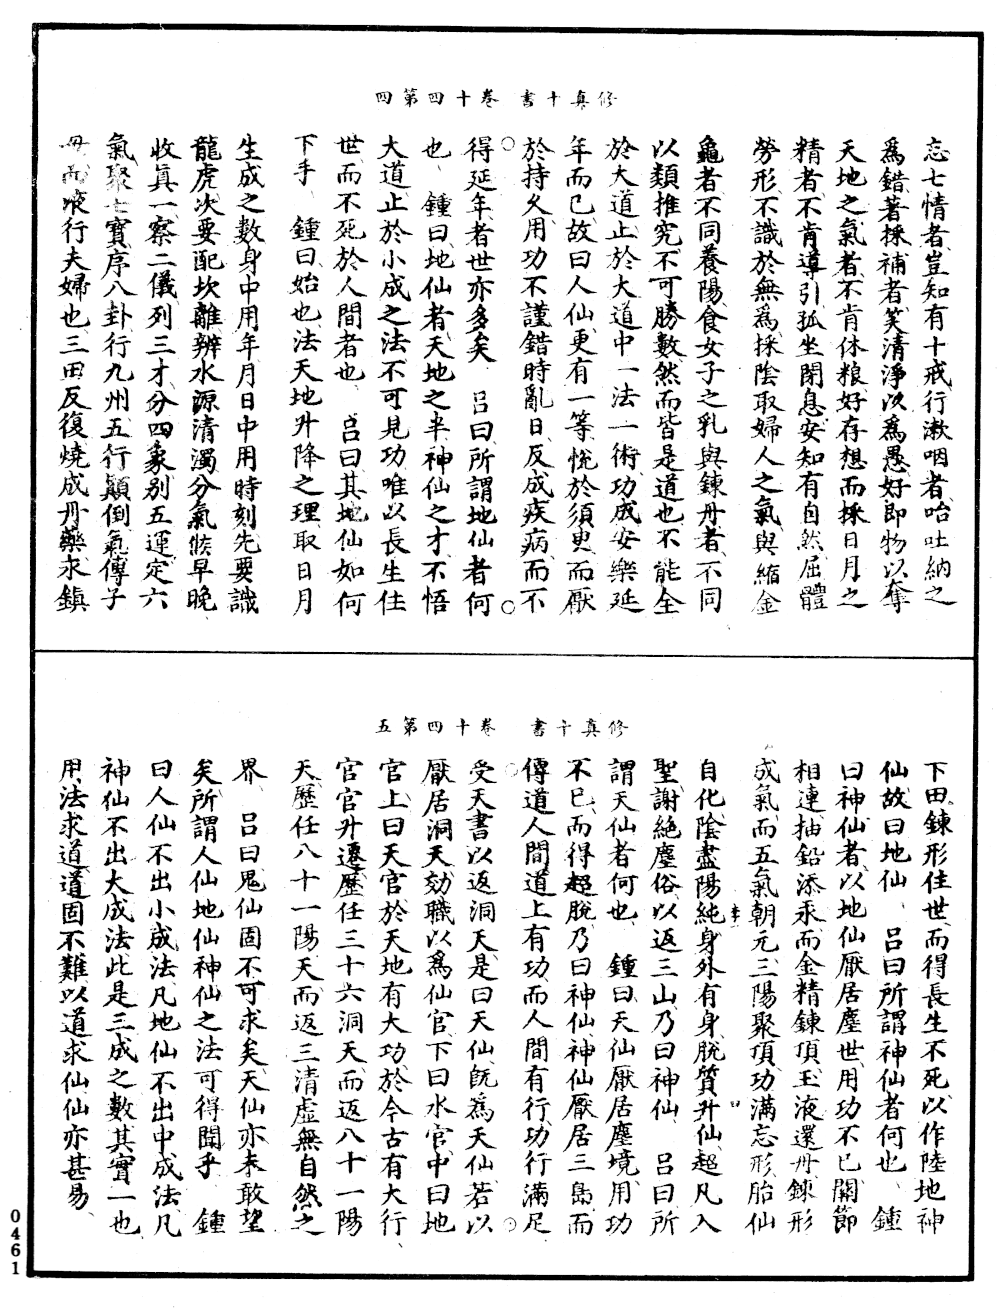 修真十書　卷十四第四
忘七情者豈知有十戒行漱咽者咍吐納之
爲錯著採補者笑清淨以爲愚好即物以奪
天地之氣者不肯休粮好存想而採日月之
精者不肯導引孤坐閉息安知有自然屈體
勞形不識於無爲採陰取婦人之氣與縮金
龜者不同養陽食女子之乳與鍊丹者不同
以類推究不可勝數然而皆是道也不能全
於大道止於大道中一法一術功成安樂延
年而已故曰人仙更有一等恱於須臾而厭
於持久用功不謹錯時亂日反成疾病而不
得延年者世亦多矣　呂曰所謂地仙者何
也　鍾曰地仙者天地之半神仙之才不悟
大道止於小成之法不可見功唯以長生住
世而不死於人間者也　呂曰其地仙如何
下手　鍾曰始也法天地升降之理取日月
生成之數身中用年月日中用時刻先要識
龍虎次要配坎離辨水源清濁分氣候早晚
收真一察二儀列三才分四象别五運定六
氣聚七寶序八卦行九州五行顛倒氣傳子
母而液行夫婦也三田反復燒成丹藥永鎮
修真十書　卷十四第五
下田鍊形住世而得長生不死以作陸地神
仙故曰地仙　呂曰所謂神仙者何也　鍾
曰神仙者以地仙厭居塵世用功不已關節
相連抽鉛添汞而金精鍊頂玉液還丹鍊形
成氣而五氣朝元三陽聚頂功滿忘形胎仙
自化陰盡陽純身外有身脫質升仙超凡入
聖謝絕塵俗以返三山乃曰神仙　呂曰所
謂天仙者何也　鍾曰天仙厭居塵境用功
不已而得超脫乃曰神仙神仙厭居三島而
傳道人間道上有功而人間有行功行滿足
受天書以返洞天是曰天仙旣爲天仙若以
厭居洞天効職以爲仙官下曰水官中曰地
官上曰天官於天地有大功於今古有大行
官官升遷歷任三十六洞天而返八十一陽
天歷任八十一陽天而返三清虛無自然之
界　呂曰鬼仙固不可求矣天仙亦未敢望
矣所謂人仙地仙神仙之法可得聞乎　鍾
曰人仙不出小成法凡地仙不出中成法凡
神仙不出大成法此是三成之數其實一也
用法求道道固不難以道求仙仙亦甚易
0461